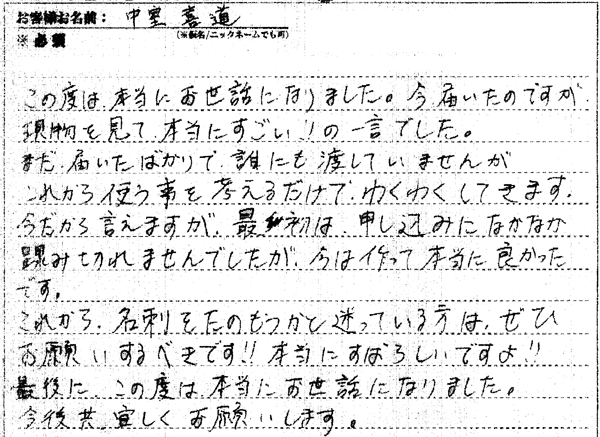 お客様お名前： 中室 喜道
※必須 （※仮名/ニックネームでも可）
この度は本当にお世話になりました。今届いたのですが
現物を見て本当にすごい!!の一言でした。
まだ、届いたばかりで、誰にも渡していませんが
これから使う事を考えるだけで、わくわくしてきます。
今だから言えますが、最初は、申し込みになかなか
踏み切れませんでしたが、今は作って本当に良かった
です。
これから、名刺をたのもうかと迷っている方は、ぜひ
お願いするべきです!!本当にすばらしいですよ!!
最後に、この度は本当にお世話になりました。
今後共、宜しくお願いします。